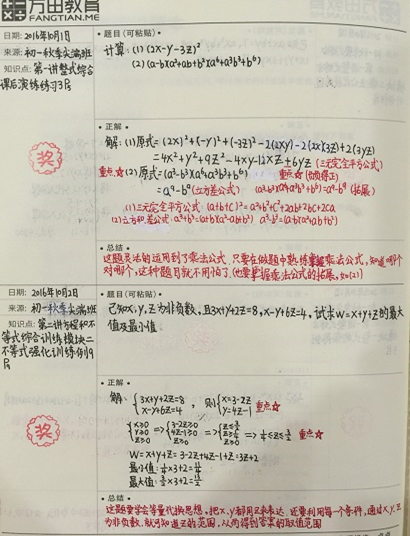 方田教育
FANGTIAN.ME
日期: 2016年10月1日
来源: 初一秋季尖端班
知识点: 第一讲整式综合
课后演练练习3
• 题目 (可粘贴) •
计算: (1) (2x-y-3z)²
(2) (a-b)(a²+ab+b²)(a⁶+a³b³+b⁶)
奖
• 正解 •
解: (1) 原式=(2x)²+(-y)²+(-3z)²-2(2xy)-2(2x)(3z)+2(3yz)
=4x²+y²+9z²-4xy-12xz+6yz (三元完全平方公式)
重点☆ (2) 原式=(a³-b³)(a⁶+a³b³+b⁶) 重点☆(负负得正)
=a⁹-b⁹ (立方差公式) (a³-b³)(a⁶+a³b³+b⁶)=a⁹-b⁹ (拓展)
(1) 三元完全平方公式: (a+b+c)²=a²+b²+c²+2ab+2bc+2ca
(2) 立方和差公式: a³+b³=(a+b)(a²-ab+b²) a³-b³=(a-b)(a²+ab+b²)
• 总结 •
这题灵活的运用到了乘法公式, 只要在做题中熟练掌握乘法公式, 知道哪个
对哪个, 这种题目就不用怕了. (也要掌握乘法公式的拓展,
日期: 2016年10月2日
来源: 初一秋季尖端班
知识点: 第二讲方程和不
等式综合训练模块二
不等式强化训练例9
• 题目 (可粘贴) •
已知x, y, z为非负数, 且3x+y+2z=8, x-y+6z=4, 试求w=x+y+z的最大
值及最小值.
奖
• 正解 •
解: {3x+y+2z=8 则{x=3-2z 重点☆
x-y+6z=4, y=4z-1
{x≥0 ⇒ {3-2z≥0 ⇒ {z≤3/2 重点☆
y≥0 4z-1≥0 z≥1/4 ⇒ 1/4≤z≤3/2
z≥0 z≥0 z≥0
W=x+y+z=3-2z+4z-1+z=3z+2
最小值: 1/4×3+2=11/4
最大值: 3/2×3+2=13/2
• 总结 •
这题要学会等量代换思想, 把x, y都用z来表达. 还要利用每一个条件, 通过x, y, z
为非负数. 就可知道z的范围, 从而得到答案的取值范围